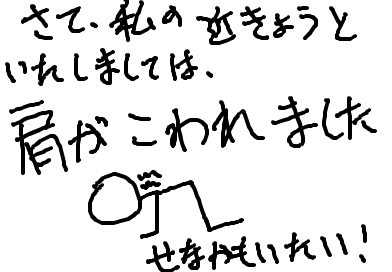 さて、私の近きょうと
いたしましては、
肩がこわれました
せなかもいたい!